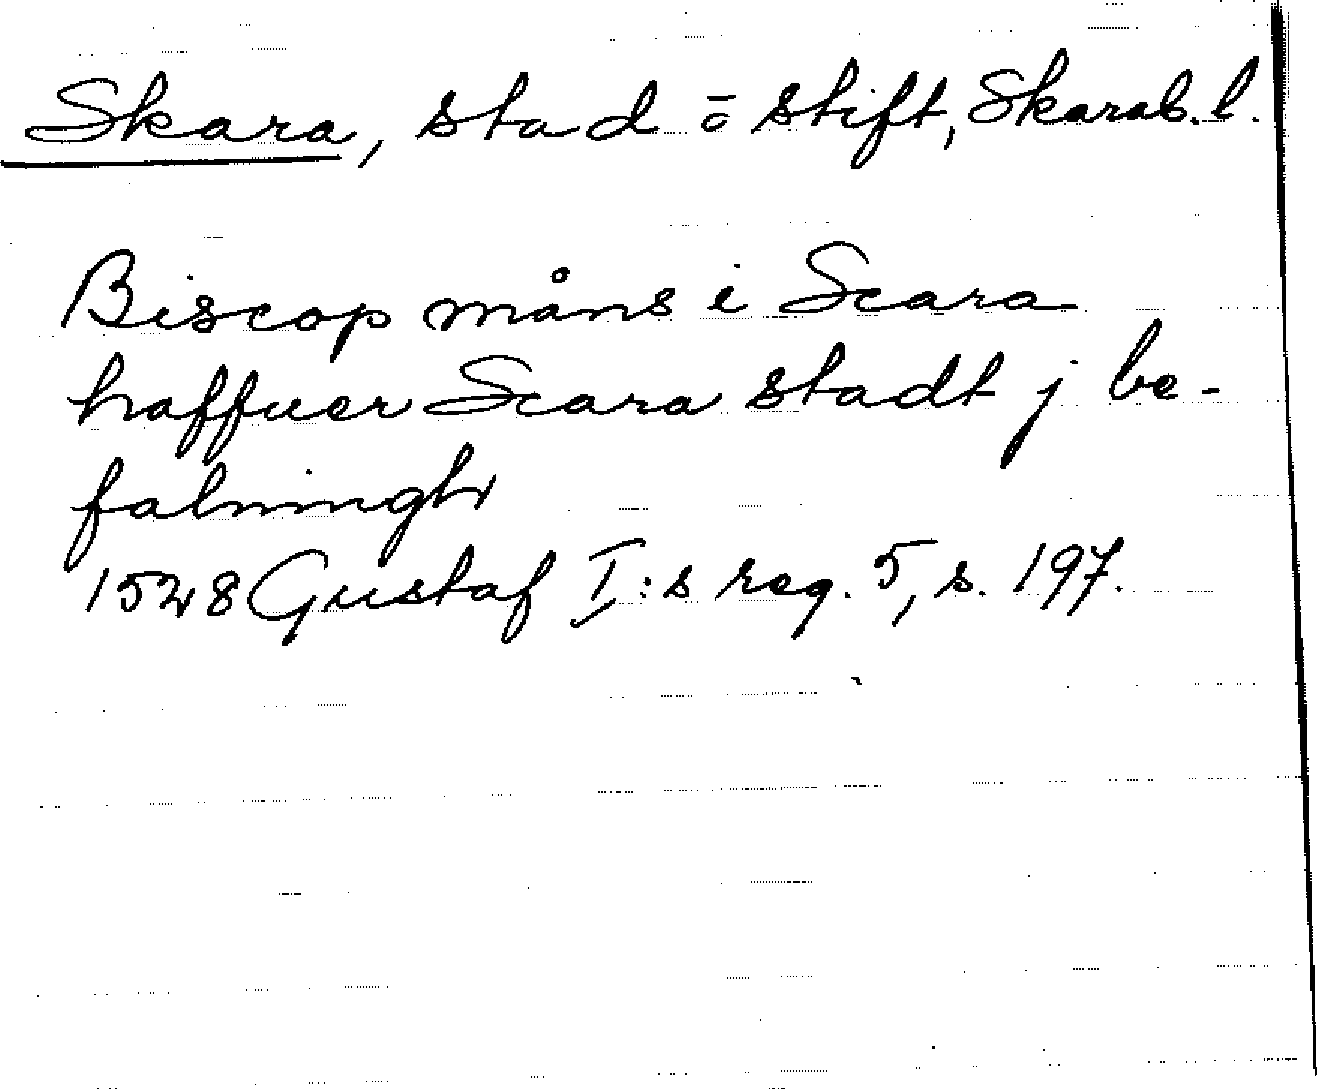 Skara, stad ō stift, Skarab. l.
Biscop måns i Scara
haffuer Scara stadt j be-
falningh
1528 Gustaf I:s reg. 5, s. 197.